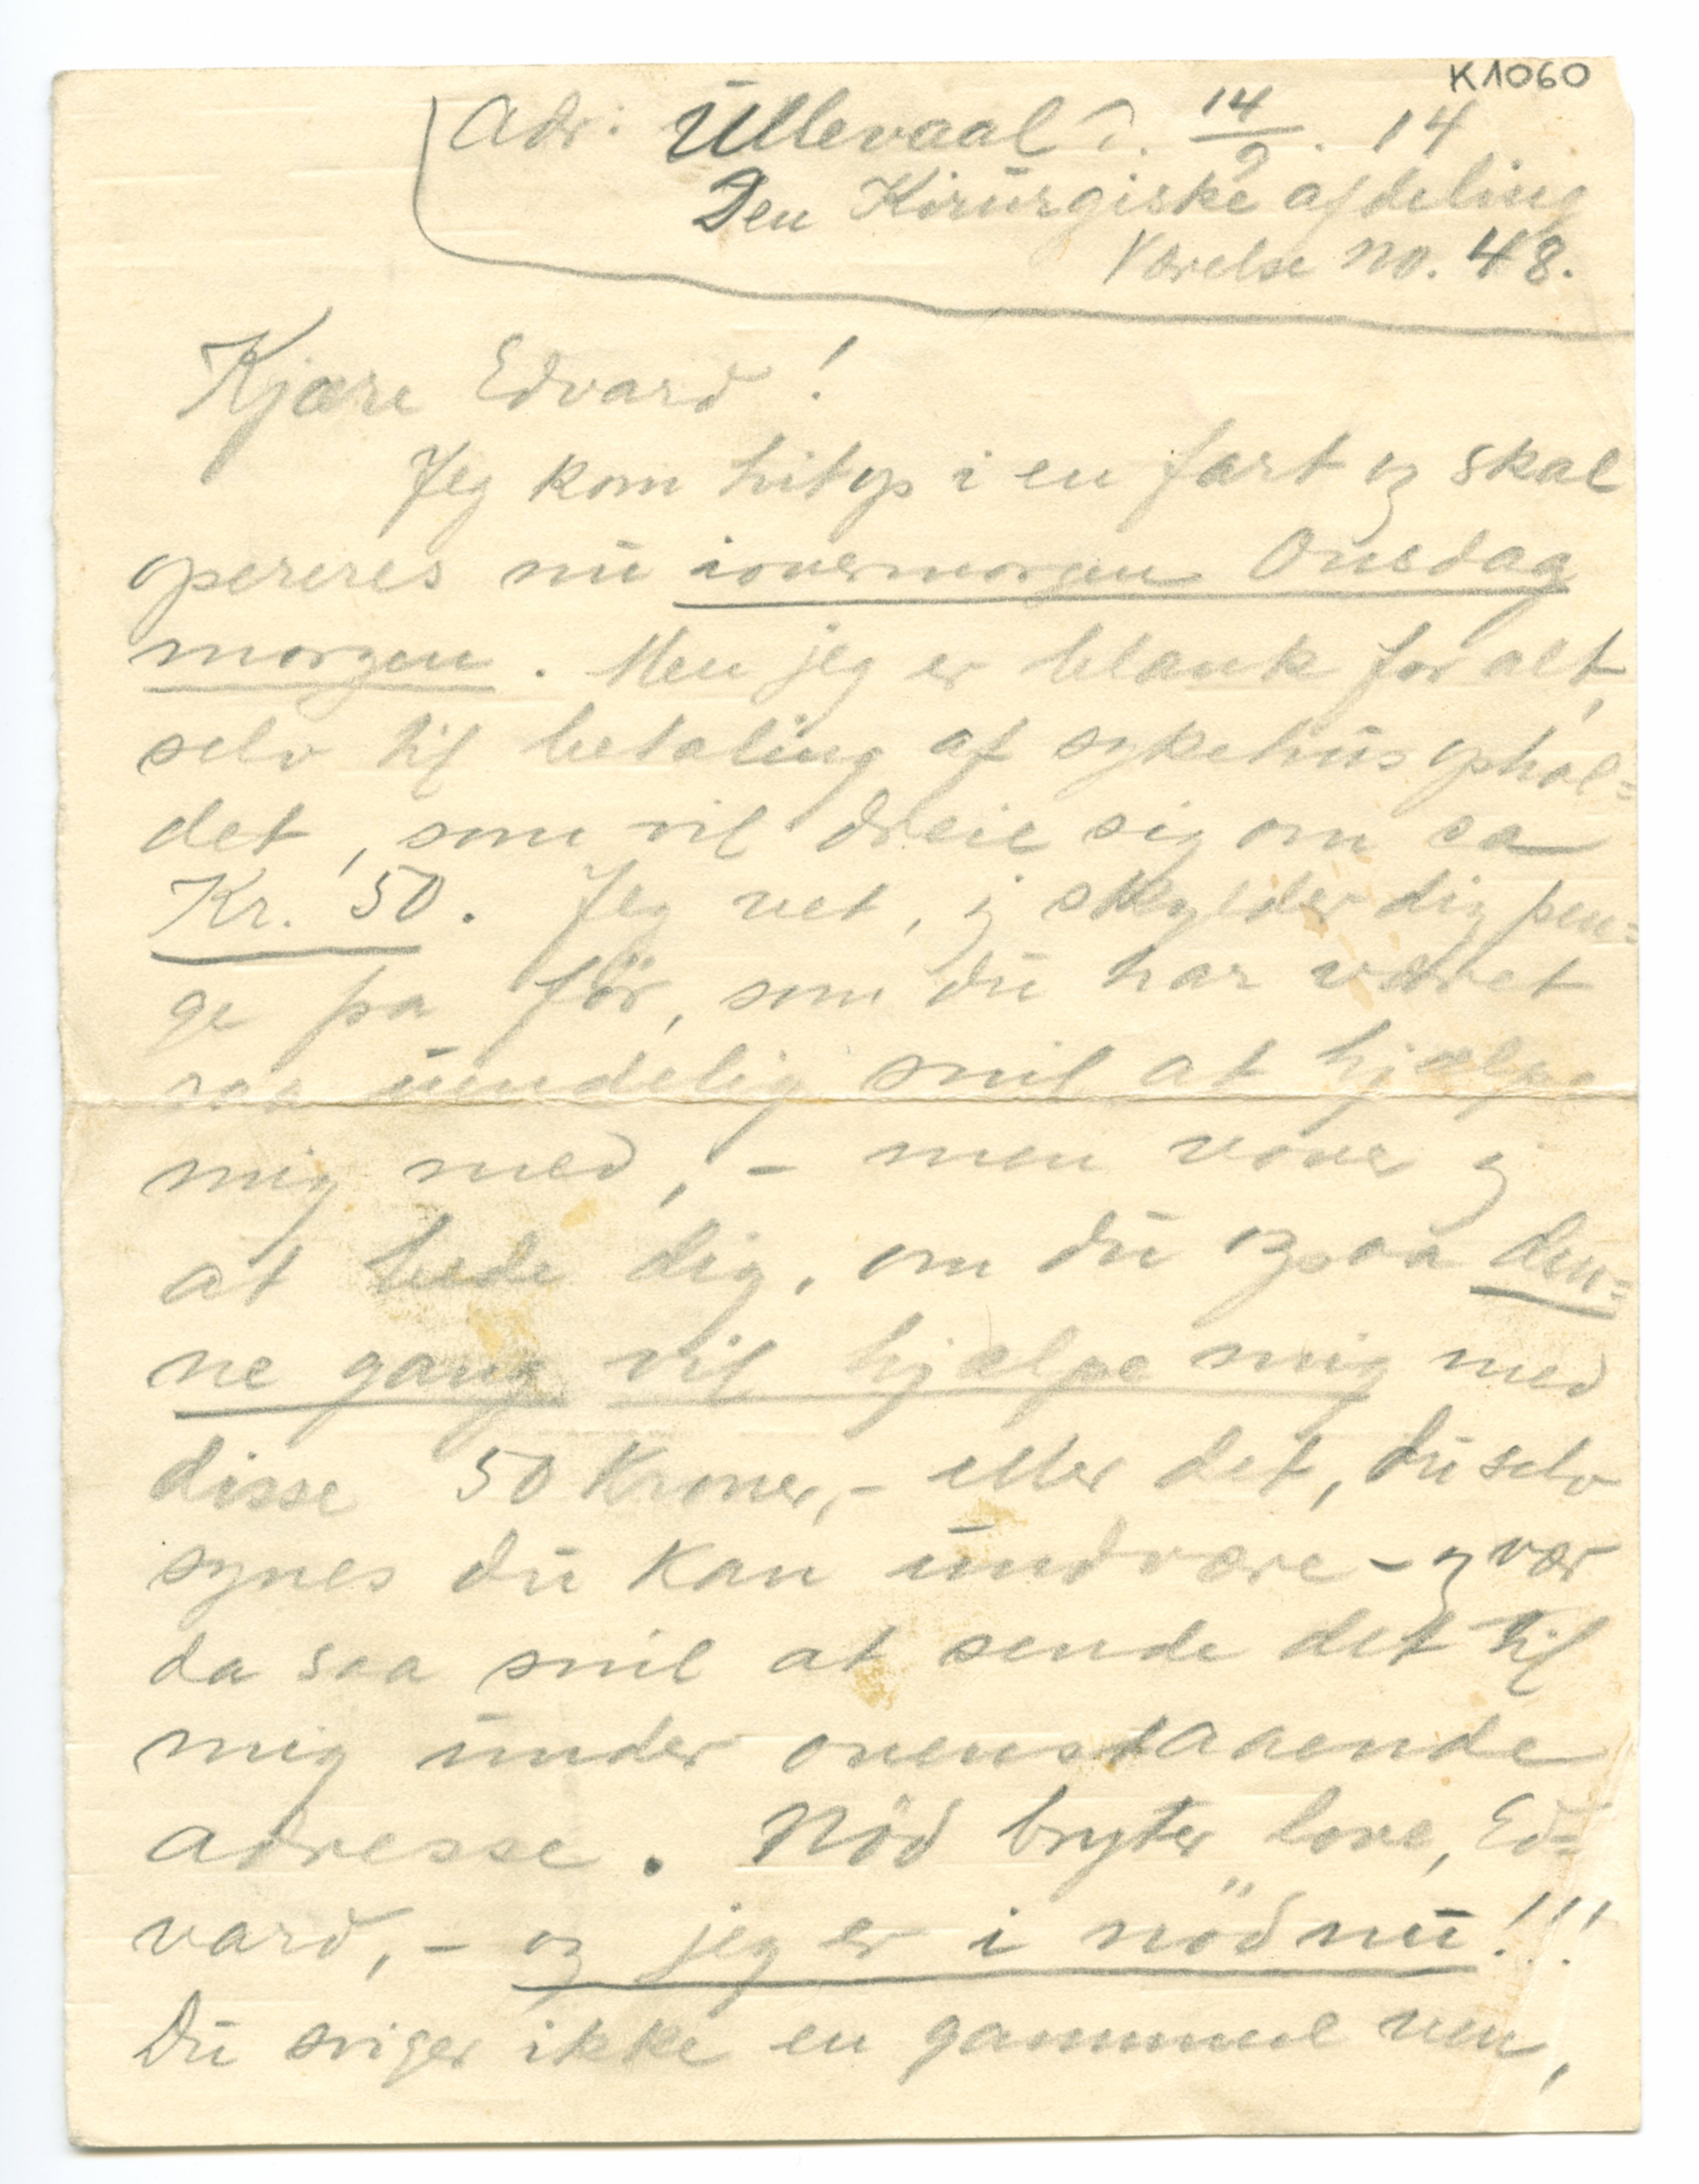 K1060
Adr: Ullevaal d. 14/9. 14
Den Kirurgiske afdeling
Værelse no. 48.
Kjære Edvard!
Jeg kom hitop i en fart og skal
opereres nu iovermorgen Onsdag
morgen. Men jeg er blank for alt,
selv til betaling af sykehusophol=
det, som vil dreie sig om ca
Kr. 50. Jeg vet, jeg skylder dig pen=
ge fra før, som du har været
saa uendelig snil at hjælpe
mig med, - men vover jeg
at bede dig, om du ogsaa den=
ne gang vil hjælpe mig med
disse 50 Kroner, - eller det, du selv
synes du kan undvære - og vær
da saa snil at sende det til
mig under ovenstaaende
adresse. Nöd bryter love, Ed=
vard, - og jeg er i nöd nu!!!
Du sviger ikke en gammel ven,